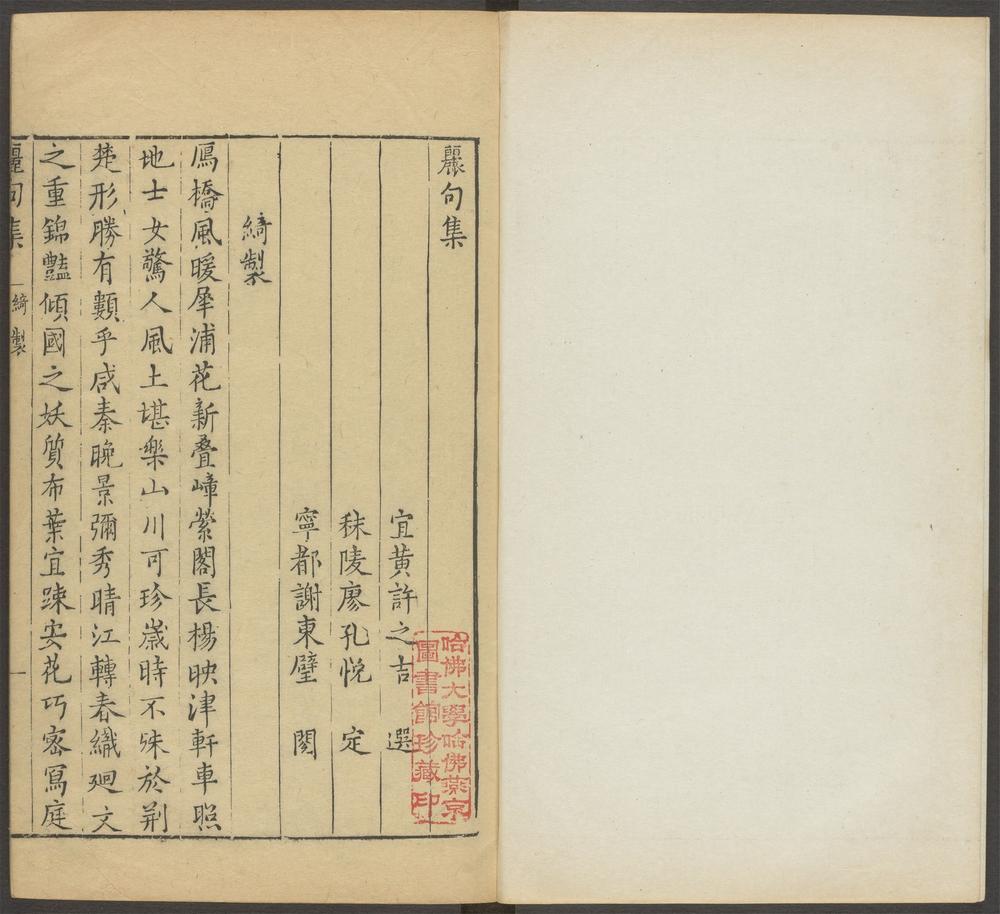 麗句集
宜黃許之吉 選
秣陵廖孔悅 定
寧都謝東璧 閱
綺製
鴈橋風暖犀浦花新疊嶂縈閣長楊映津軒車照
地士女驚人風土堪樂山川可珍嵗時不殊於荆
楚形勝有類乎咸秦晚景彌秀晴江轉春織廻文
之重錦豔傾國之妖質布葉宜踈安花巧密寫庭
麗句集 綺製 一
哈佛大學哈佛燕京
圖書館珍藏印